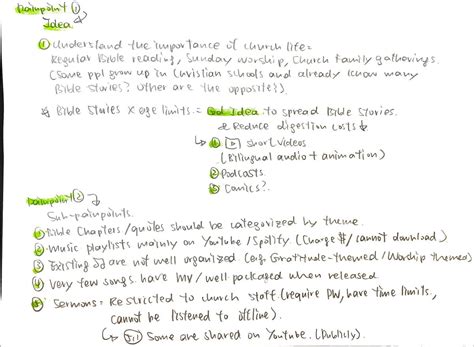 Painpoint ①
Idea
① Understand the importance of church life:
Regular Bible reading, Sunday worship, Church family gatherings
(Some ppl grow up in Christian schools and already know many
Bible stories? Other are the opposite?).
Bible Stories × age limits = God Idea to spread Bible Stories.
& Reduce digestion costs ↓
↳ ① ▶ short videos
(Bilingual audio + animation)
② Podcasts
③ Comics?
Painpoint ②
Sub-painpoints.
① Bible Chapters/quotes should be categorized by theme
② Music playlists mainly on YouTube/Spotify (Charge $/cannot download)
③ Existing ♫ are not well organized (e.g. Gratitude-themed/Worship themes)
④ Very few songs have MV/well packaged when released.
⑤ Sermons: Restricted to church staff (require PW, have time limits,
cannot be listened to offline).
Some are shared on YouTube. (Publicly).